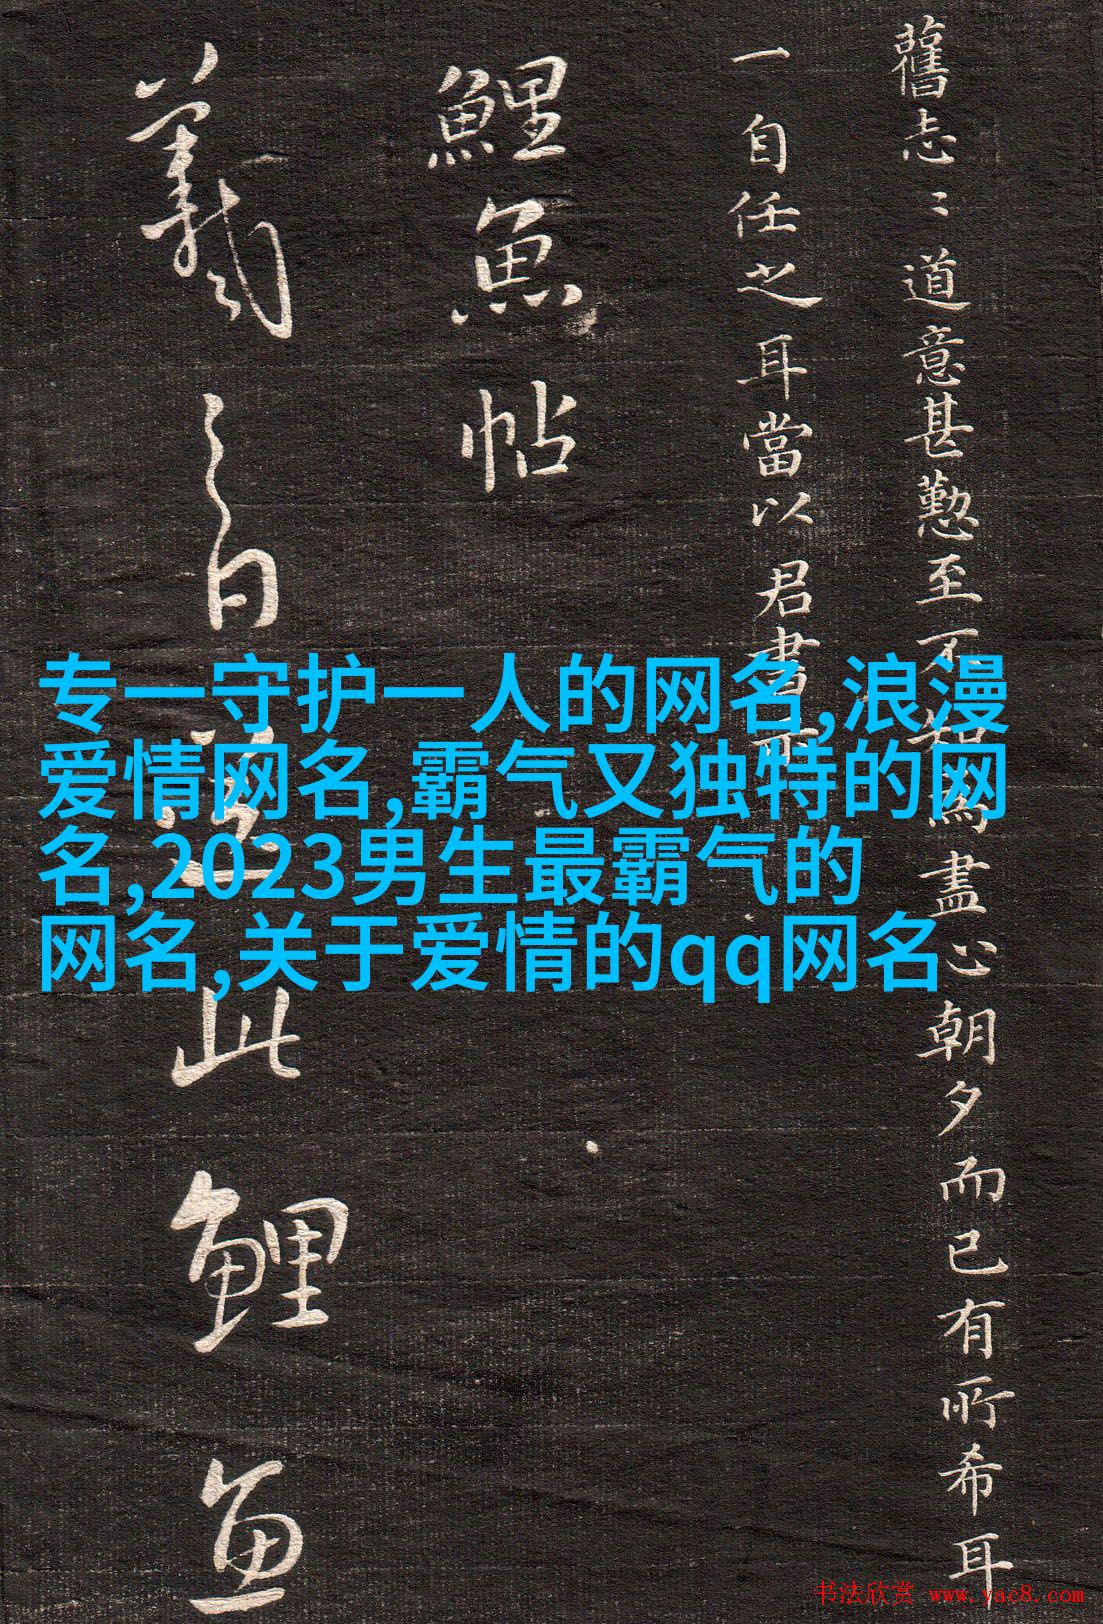 舊志〻道意甚懃至不知為盡心朝夕而已有所希耳
一自任之耳當以君書示
鯉魚帖
羲之白送此鯉魚
专一守护一人的网名,浪漫
爱情网名,霸气又独特的网
名,2023男生最霸气的
网名,关于爱情的qq网名
书法欣赏 www.yac8.com